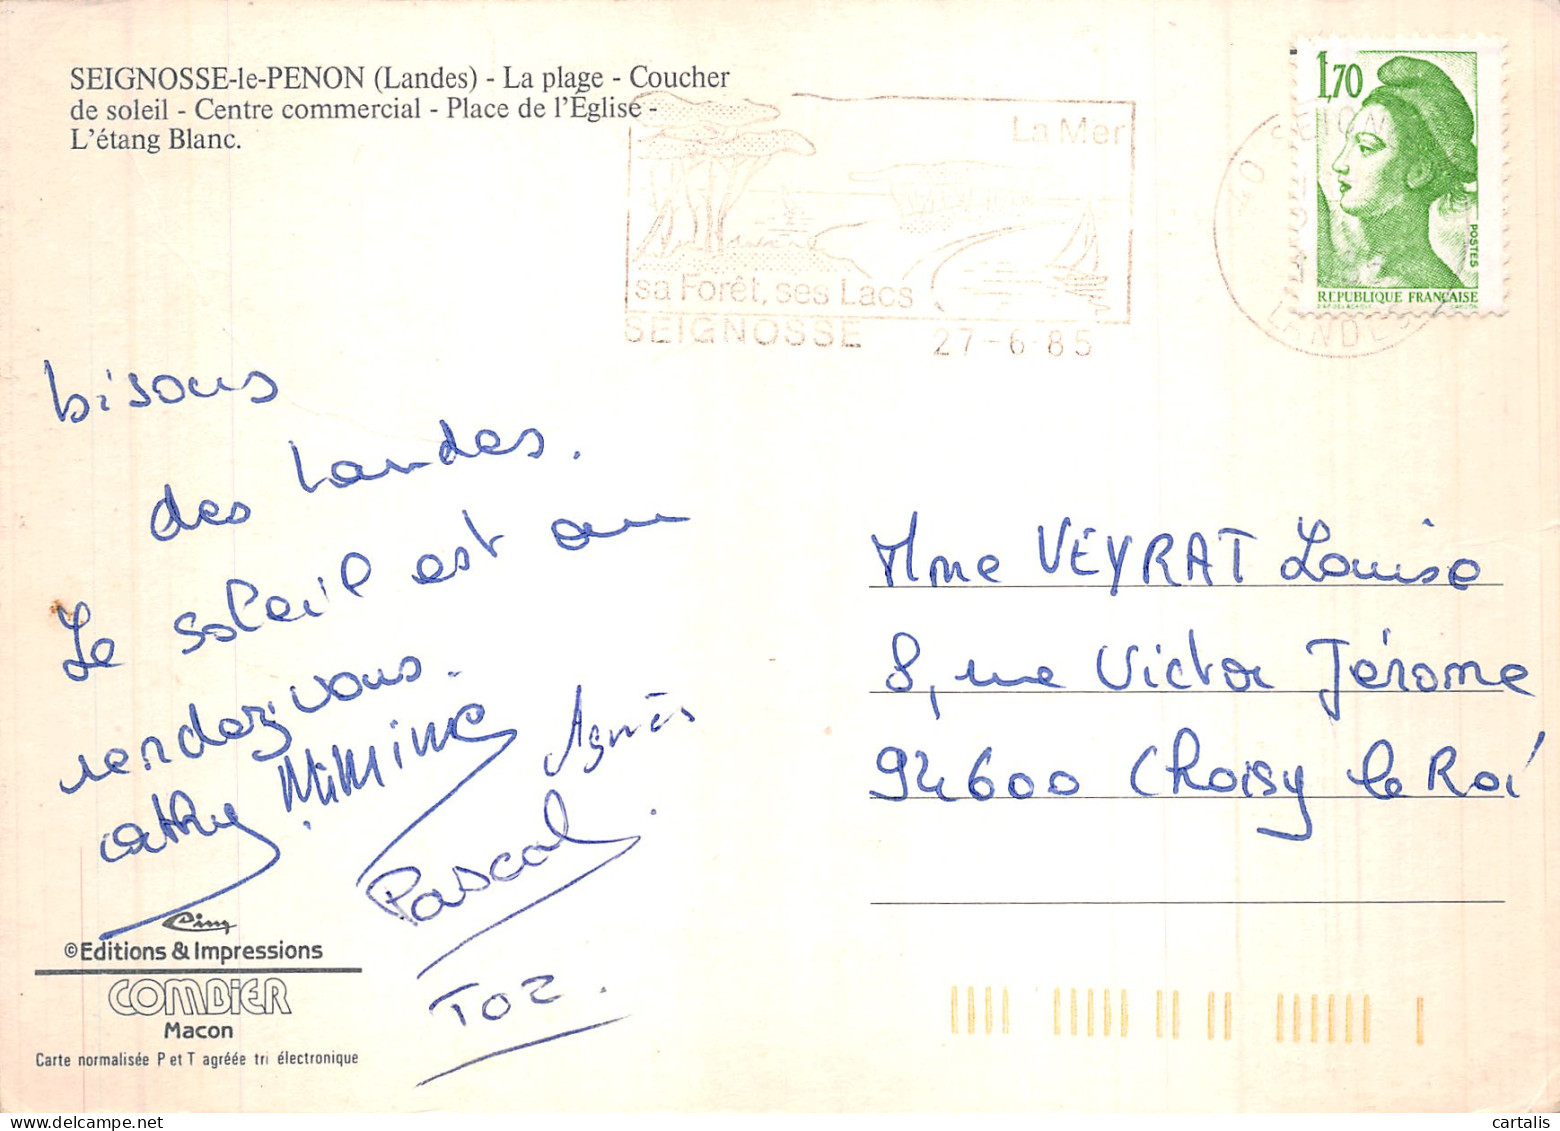 SEIGNOSSE-le-PENON (Landes) - La plage - Coucher
de soleil - Centre commercial - Place de l'Église -
L'étang Blanc.
La Mer
sa Forêt, ses Lacs
SEIGNOSSE 27-6-85
40 SEIGN
LANDES
1,70
POSTES
RÉPUBLIQUE FRANÇAISE
bisous
des Landes.
Le soleil est au
rendez-vous.
Cathy Mimine Agnès
Pascal.
TOZ.
Mme VEYRAT Louise
8, rue Victor Jérome
94600 Choisy le Roi
Cim
©Editions & Impressions
COMBIER
Macon
Carte normalisée P et T agréée tri électronique
cartalis